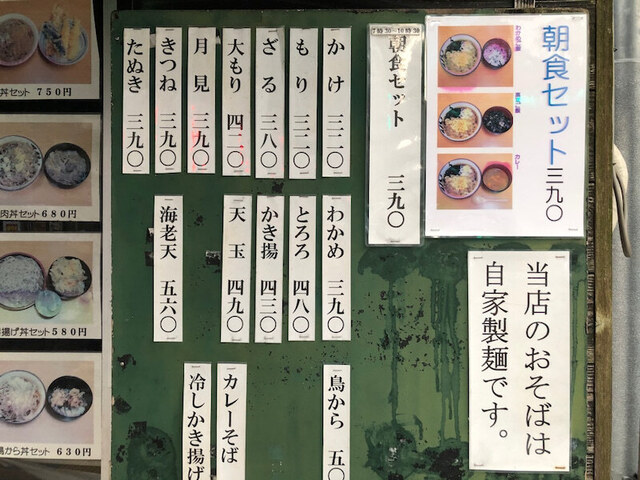 朝食セット三九〇
わかめ
カレー
当店のおそばは
自家製麺です。
7時30~10時30
朝食セット 三九〇
かけ 三二〇
もり 三二〇
ざる 三八〇
大もり 四二〇
月見 三九〇
きつね 三九〇
たぬき 三九〇
わかめ 三九〇
とろろ 四八〇
かき揚 四三〇
天玉 四九〇
海老天 五六〇
鳥から 五〇
カレーそば
冷しかき揚げ
丼セット 750円
肉丼セット680円
揚げ丼セット580円
鶏から丼セット 630円